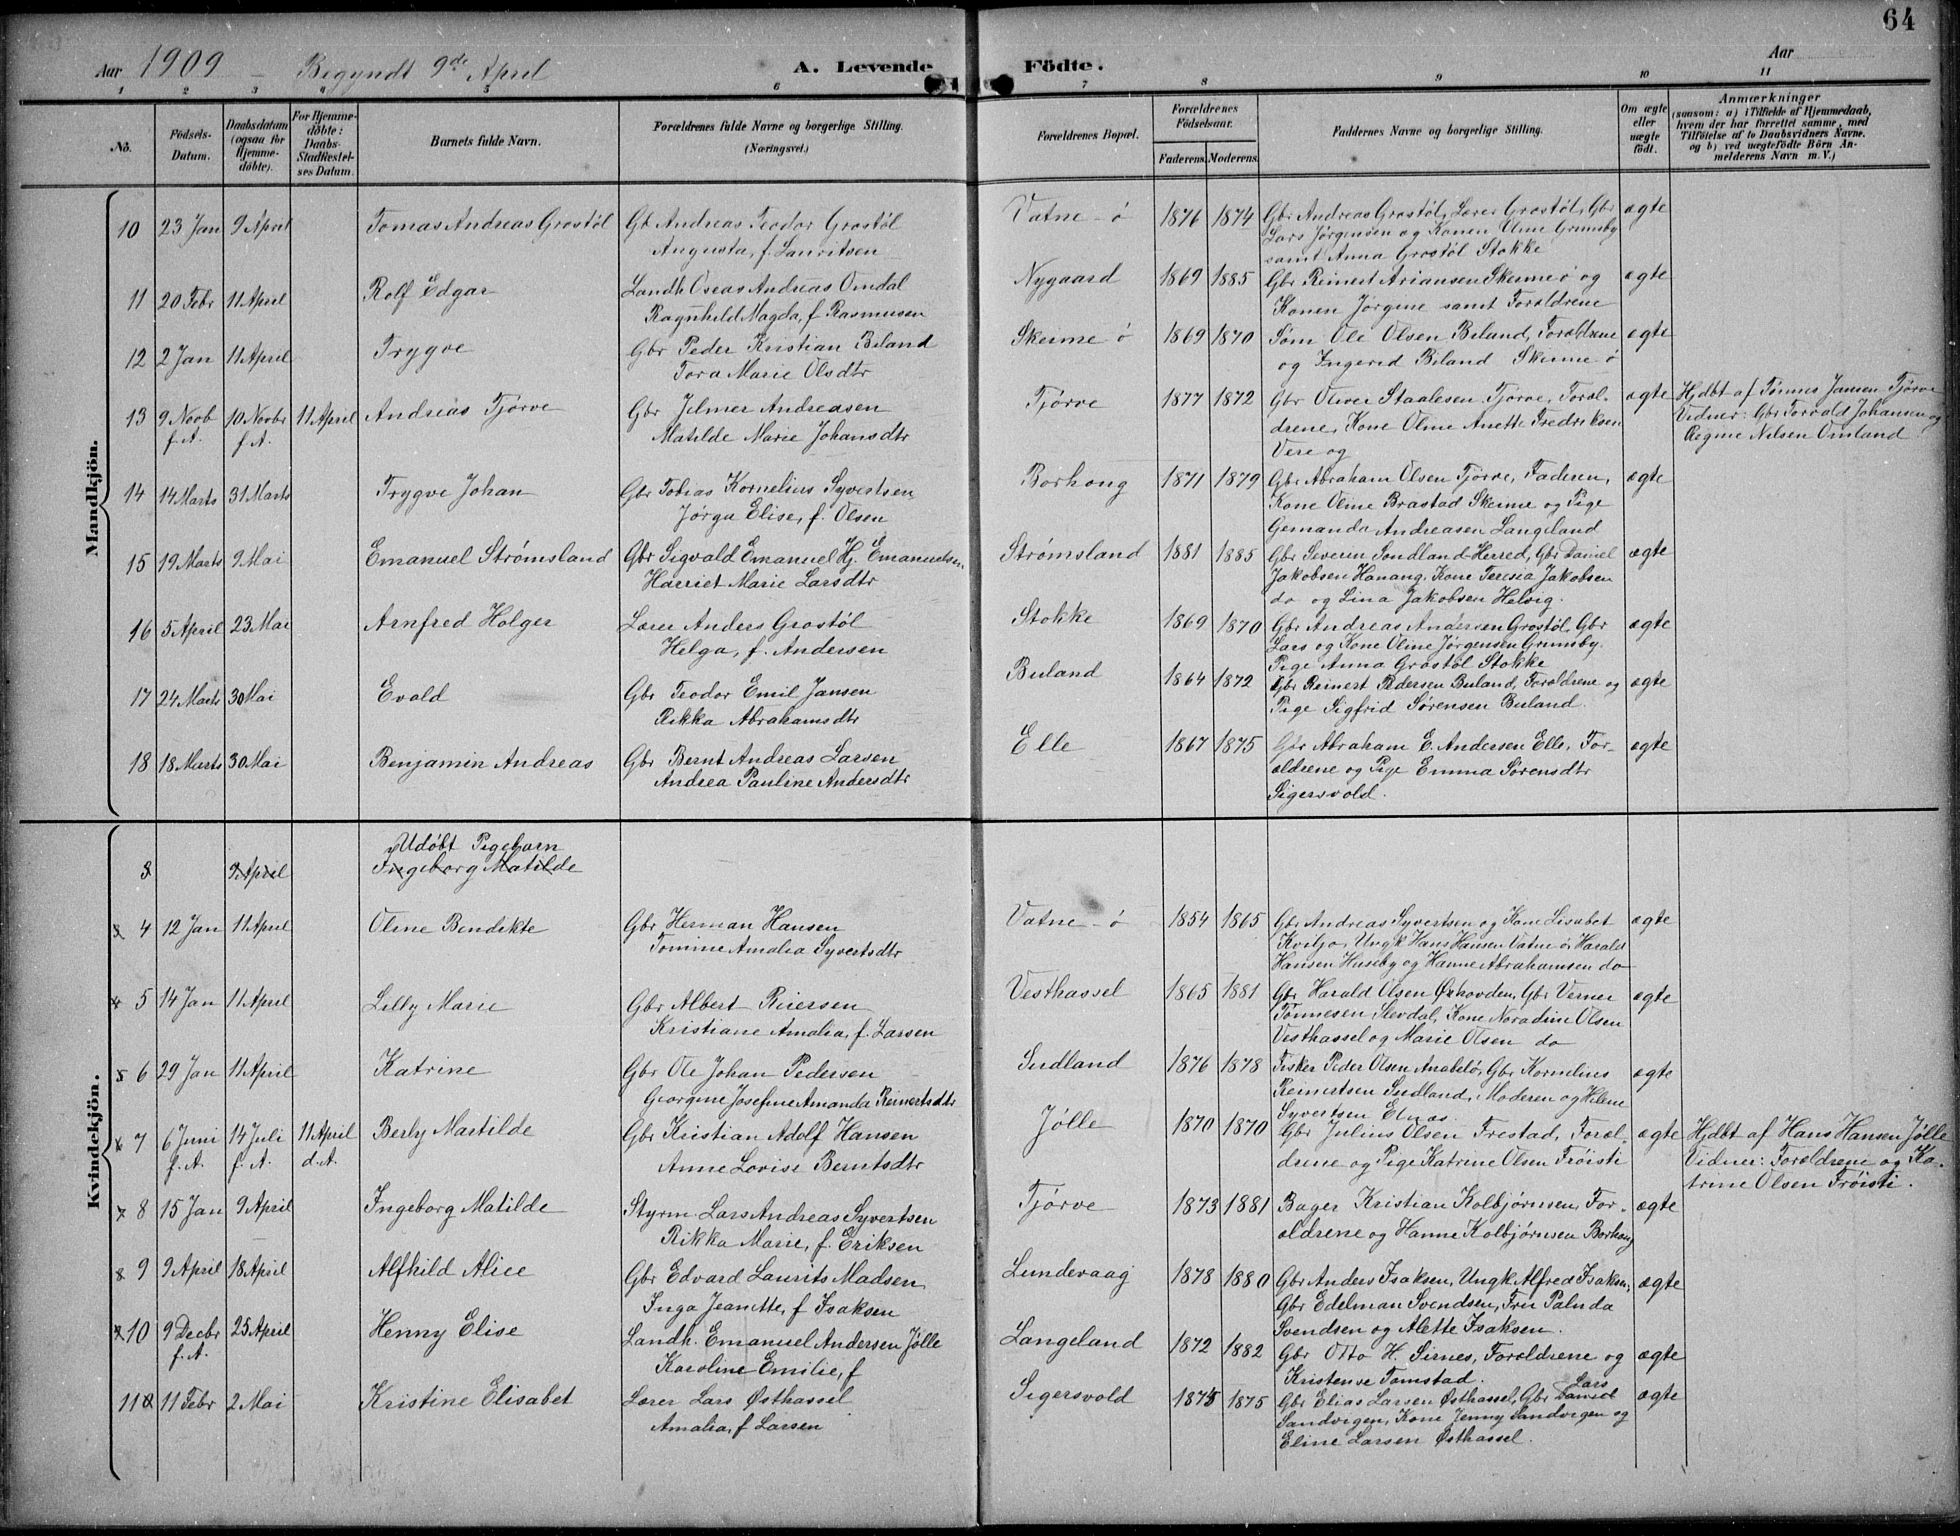 64
Aar 1909 – Begyndt 9de April
A. Levende Fødte.
Aar
1 2 3 4 5 6 7 8 9 10 11
No.
Fødsels-Datum.
Daabsdatum (ogsaa for Hjemme-døbte).
For Hjemme-døbte: Daabs-Stadfæstel-ses Datum.
Barnets fulde Navn.
Forældrenes fulde Navne og borgerlige Stilling. (Næringsvei.)
Forældrenes Bopæl.
Forældrenes Fødselsaar.
Faderens. Moderens.
Faddernes Navne og borgerlige Stilling.
Om ægte eller uægte født.
Anmærkninger
(saasom: a) i Tilfælde af Hjemmedaab,
hvem der har forrettet samme, med
Tilføielse af to Daabsvidners Navne.
og b) ved uægtefødte Børn An-
melderens Navn m. V.)
Mandkjön.
10 23 Jan 9 April Tomas Andreas Grostøl Gb Andreas Teodor Grostøl Vatne-ø 1876 1874 Gbr Andreas Grostøl, Lærer Grostøl, Gbr ægte
Augusta, f. Lauritsen Lars Jørgensen og Konen Oline Grimsby
samt Anna Grostøl Stokke
11 20 Febr 11 April Rolf Edgar Landh Oseas Andreas Omdal Nygaard 1869 1885 Gbr Reinert Ariansen Skeime ø og ægte
Ragnhild Magda, f Rasmusen Konen Jørgine samt Forældrene
12 2 Jan 11 April Trygve Gbr Peder Kristian Biland Skeime ø 1869 1870 Søm Ole Olsen Biland, Forældrene ægte
Tora Marie Olsdtr og Ingerid Biland Skeime ø
13 9 Novb 10 Novbr 11 April Andreas Tjørve Gbr Jelmer Andreasen Tjørve 1877 1872 Gbr Oliver Staalesen Tjørve, Foræl- ægte Hjdbt af Tønnes Jansen Tjørve
f.A. f.A. Matilde Marie Johansdtr drene, Kone Oline Anette Fredriksen Vidner: Gbr Torvald Johansen og
Vere og Regine Nilsen Omland
14 14 Marts 31 Marts Trygve Johan Gbr Tobias Kornelius Syvertsen Borhong 1871 1879 Gbr Abraham Olsen Tjørve, Faderen, ægte
Jørga Elise, f. Olsen Kone Oline Brastad Skeime og Pige
Gemanda Andreasen Langeland
15 19 Marts 9 Mai Emanuel Strømsland Gbr Sigvald Emanuel Hj. Emanuelsen. Strømsland 1881 1885 Gbr Severin Sundland Herred, Gbr Daniel ægte
Harriet Marie Larsdtr Jakobsen Hanang, Kone Teresia Jakobsen
do og Lina Jakobsen Helvig.
16 5 April 23 Mai Arnfred Holger Lærer Anders Grostøl Stokke 1869 1870 Gbr Andreas Andersen Grostøl, Gbr ægte
Helga, f. Andersen Lars og Kone Oline Jørgensen Grimsby.
Pige Anna Grostøl Stokke
17 24 Marts 30 Mai Evald Gbr Teodor Emil Jansen Buland 1864 1872 Gbr Reinert Pedersen Buland, Forældrene og ægte
Rikka Abrahamsdtr Pige Sigfrid Sørensen Buland.
18 18 Marts 30 Mai Benjamin Andreas Gbr Bernt Andreas Larsen Elle 1867 1875 Gbr Abraham E. Andersen Elle, For- ægte
Andrea Pauline Andersdtr ældrene og Pige Emma Sørensdtr
Sigersvold.
Kvindekjön.
Udøbt Pigebarn
3 9 April Ingeborg Matilde
3 4 12 Jan 11 April Oline Bendikte Gbr Herman Hansen Vatne-ø 1854 1865 Gbr Andreas Syvertsen og Kone Lisabet ægte
Tomine Amalia Syvertsdtr Kviljo, Ungk Hans Hansen Vatne ø, Harald
Hansen Huseby og Hanne Abrahamsen do
4 5 14 Jan 11 April Lilly Marie Gbr Albert Reiersen Vesthassel 1865 1881 Gbr Harald Olsen Ørhovden, Gbr Verner ægte
Kristiane Amalia, f. Larsen Tønnesen Slevdal, Kone Noradine Olsen
Vesthassel og Marie Olsen do
5 6 29 Jan 11 April Katrine Gbr Ole Johan Pedersen Sudland 1876 1878 Fisker Peder Olsen Anabelø, Gbr Kornelius ægte
Georgine Josefine Amanda Reinertsdtr Reinertsen Sudland, Moderen og Helene
Syvertsen Elnes.
6 7 6 Juni 14 Juli 11 April Berly Martilde Gbr Kristian Adolf Hansen Jølle 1870 1870 Gbr Julius Olsen Frestad, Foræl- ægte Hjdbt af Hans Hansen Jølle
f.A. f.A. d.A. Anne Lovise Berntsdtr drene og Pige Katrine Olsen Frøisti Vidner: Forældrene og Ka-
trine Olsen Frøisti.
7 8 15 Jan 9 April Ingeborg Matilde Styrm. Lars Andreas Syvertsen Tjørve 1873 1881 Bager Kristian Kolbjørnsen, For- ægte
Rikka Marie, f. Eriksen ældrene og Hanne Kolbjørnsen Borhong
8 9 9 April 18 April Alfhild Alice Gbr Edvard Laurits Madsen Lundevaag 1878 1880 Gbr Anders Isaksen, Ungk Alfred Isaksen, ægte
Inga Jeanette, f Isaksen Gbr Edelman Svendsen, Fru Palnda
Svendsen og Alette Isaksen.
9 10 9 Decbr 25 April Henny Elise Landh. Emanuel Andersen Jølle Langeland 1872 1882 Gbr Otto H. Sirnes, Forældrene og ægte
f.A. Karoline Emilie, f Kristense Tomstad.
11 11 Febr 2 Mai Kristine Elisabet Lærer Lars Østhassel Sigersvold 1875 1875 Gbr Elias Larsen Østhassel, Gbr Daniel Lars ægte
Amalia, f Larsen Sandvigen, Kone Jenny Sandvigen og
Eline Larsen Østhassel.